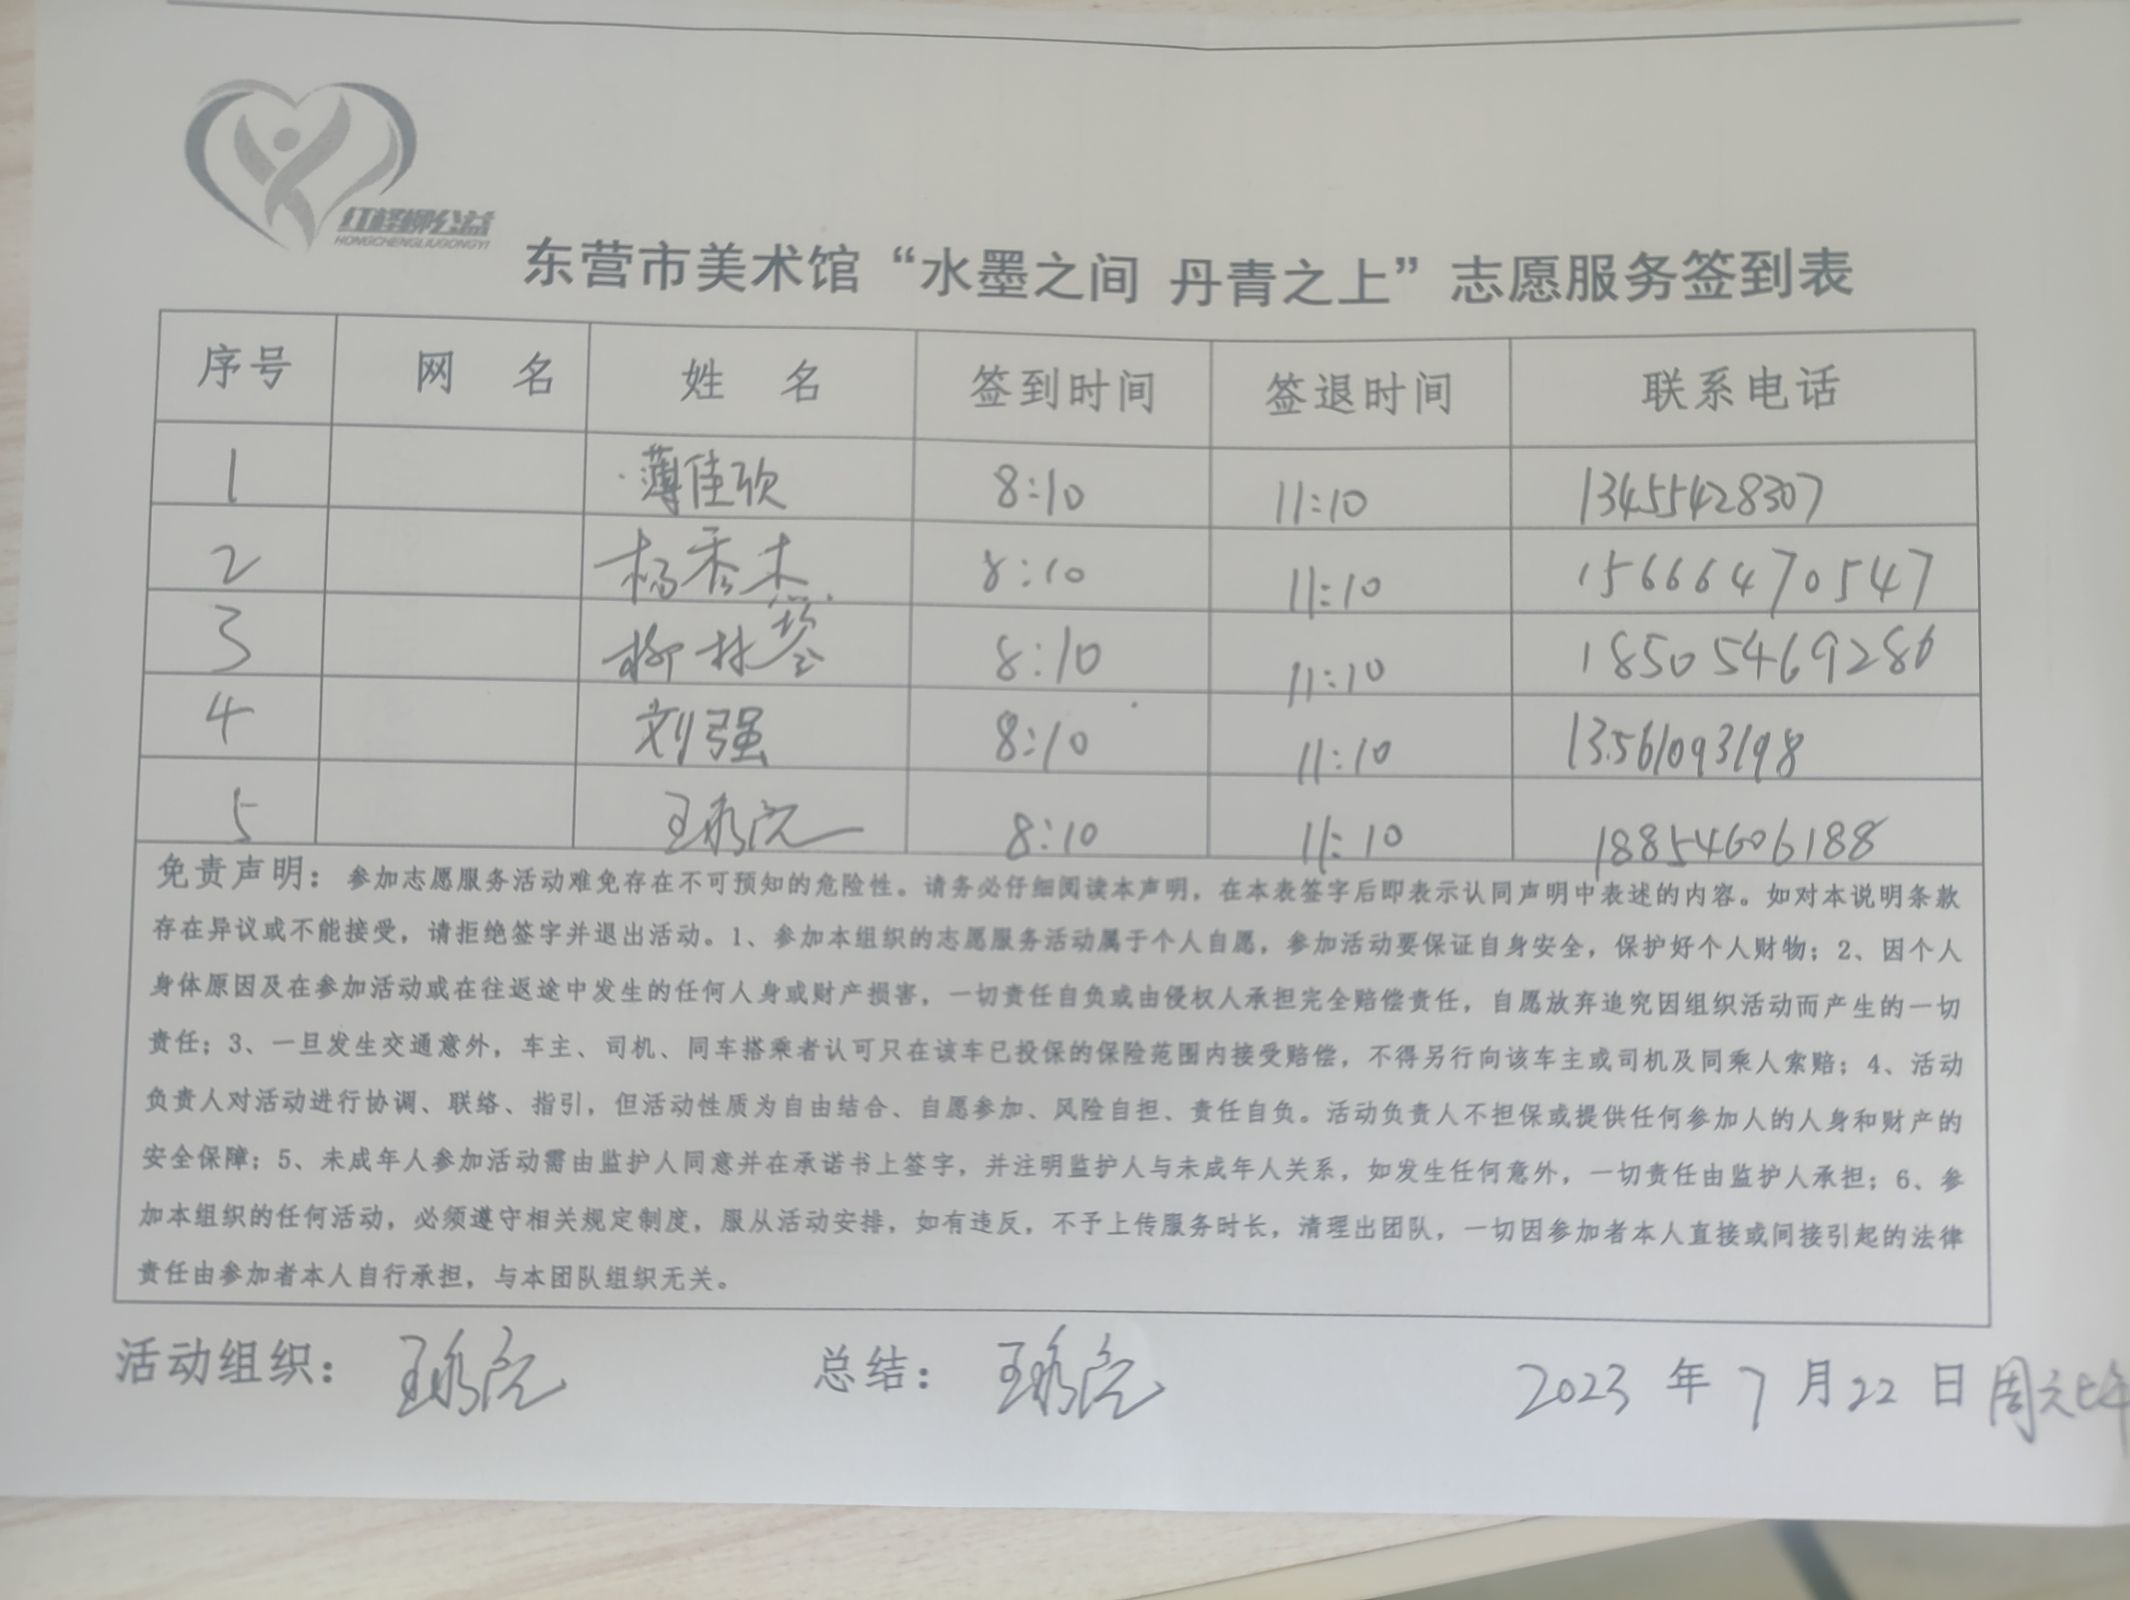 红柽柳公益
HONGCHENGLIUGONGYI
东营市美术馆“水墨之间 丹青之上”志愿服务签到表
序号 网 名 姓 名 签到时间 签退时间 联系电话
1 薄佳欣 8:10 11:10 13455428307
2 杨秀杰 8:10 11:10 15666470547
3 柳林 8:10 11:10 18505469286
4 刘强 8:10 11:10 13561093198
5 王 8:10 11:10 18854606188
免责声明：参加志愿服务活动难免存在不可预知的危险性。请务必仔细阅读本声明，在本表签字后即表示认同声明中表述的内容。如对本说明条款
存在异议或不能接受，请拒绝签字并退出活动。1、参加本组织的志愿服务活动属于个人自愿，参加活动要保证自身安全，保护好个人财物；2、因个人
身体原因及在参加活动或在往返途中发生的任何人身或财产损害，一切责任自负或由侵权人承担完全赔偿责任，自愿放弃追究因组织活动而产生的一切
责任；3、一旦发生交通意外，车主、司机、同车搭乘者认可只在该车已投保的保险范围内接受赔偿，不得另行向该车主或司机及同乘人索赔；4、活动
负责人对活动进行协调、联络、指引，但活动性质为自由结合、自愿参加、风险自担、责任自负。活动负责人不担保或提供任何参加人的人身和财产的
安全保障；5、未成年人参加活动需由监护人同意并在承诺书上签字，并注明监护人与未成年人关系，如发生任何意外，一切责任由监护人承担；6、参
加本组织的任何活动，必须遵守相关规定制度，服从活动安排，如有违反，不予上传服务时长，清理出团队，一切因参加者本人直接或间接引起的法律
责任由参加者本人自行承担，与本团队组织无关。
活动组织： 王 总结： 王 2023 年 7 月 22 日 周六上午